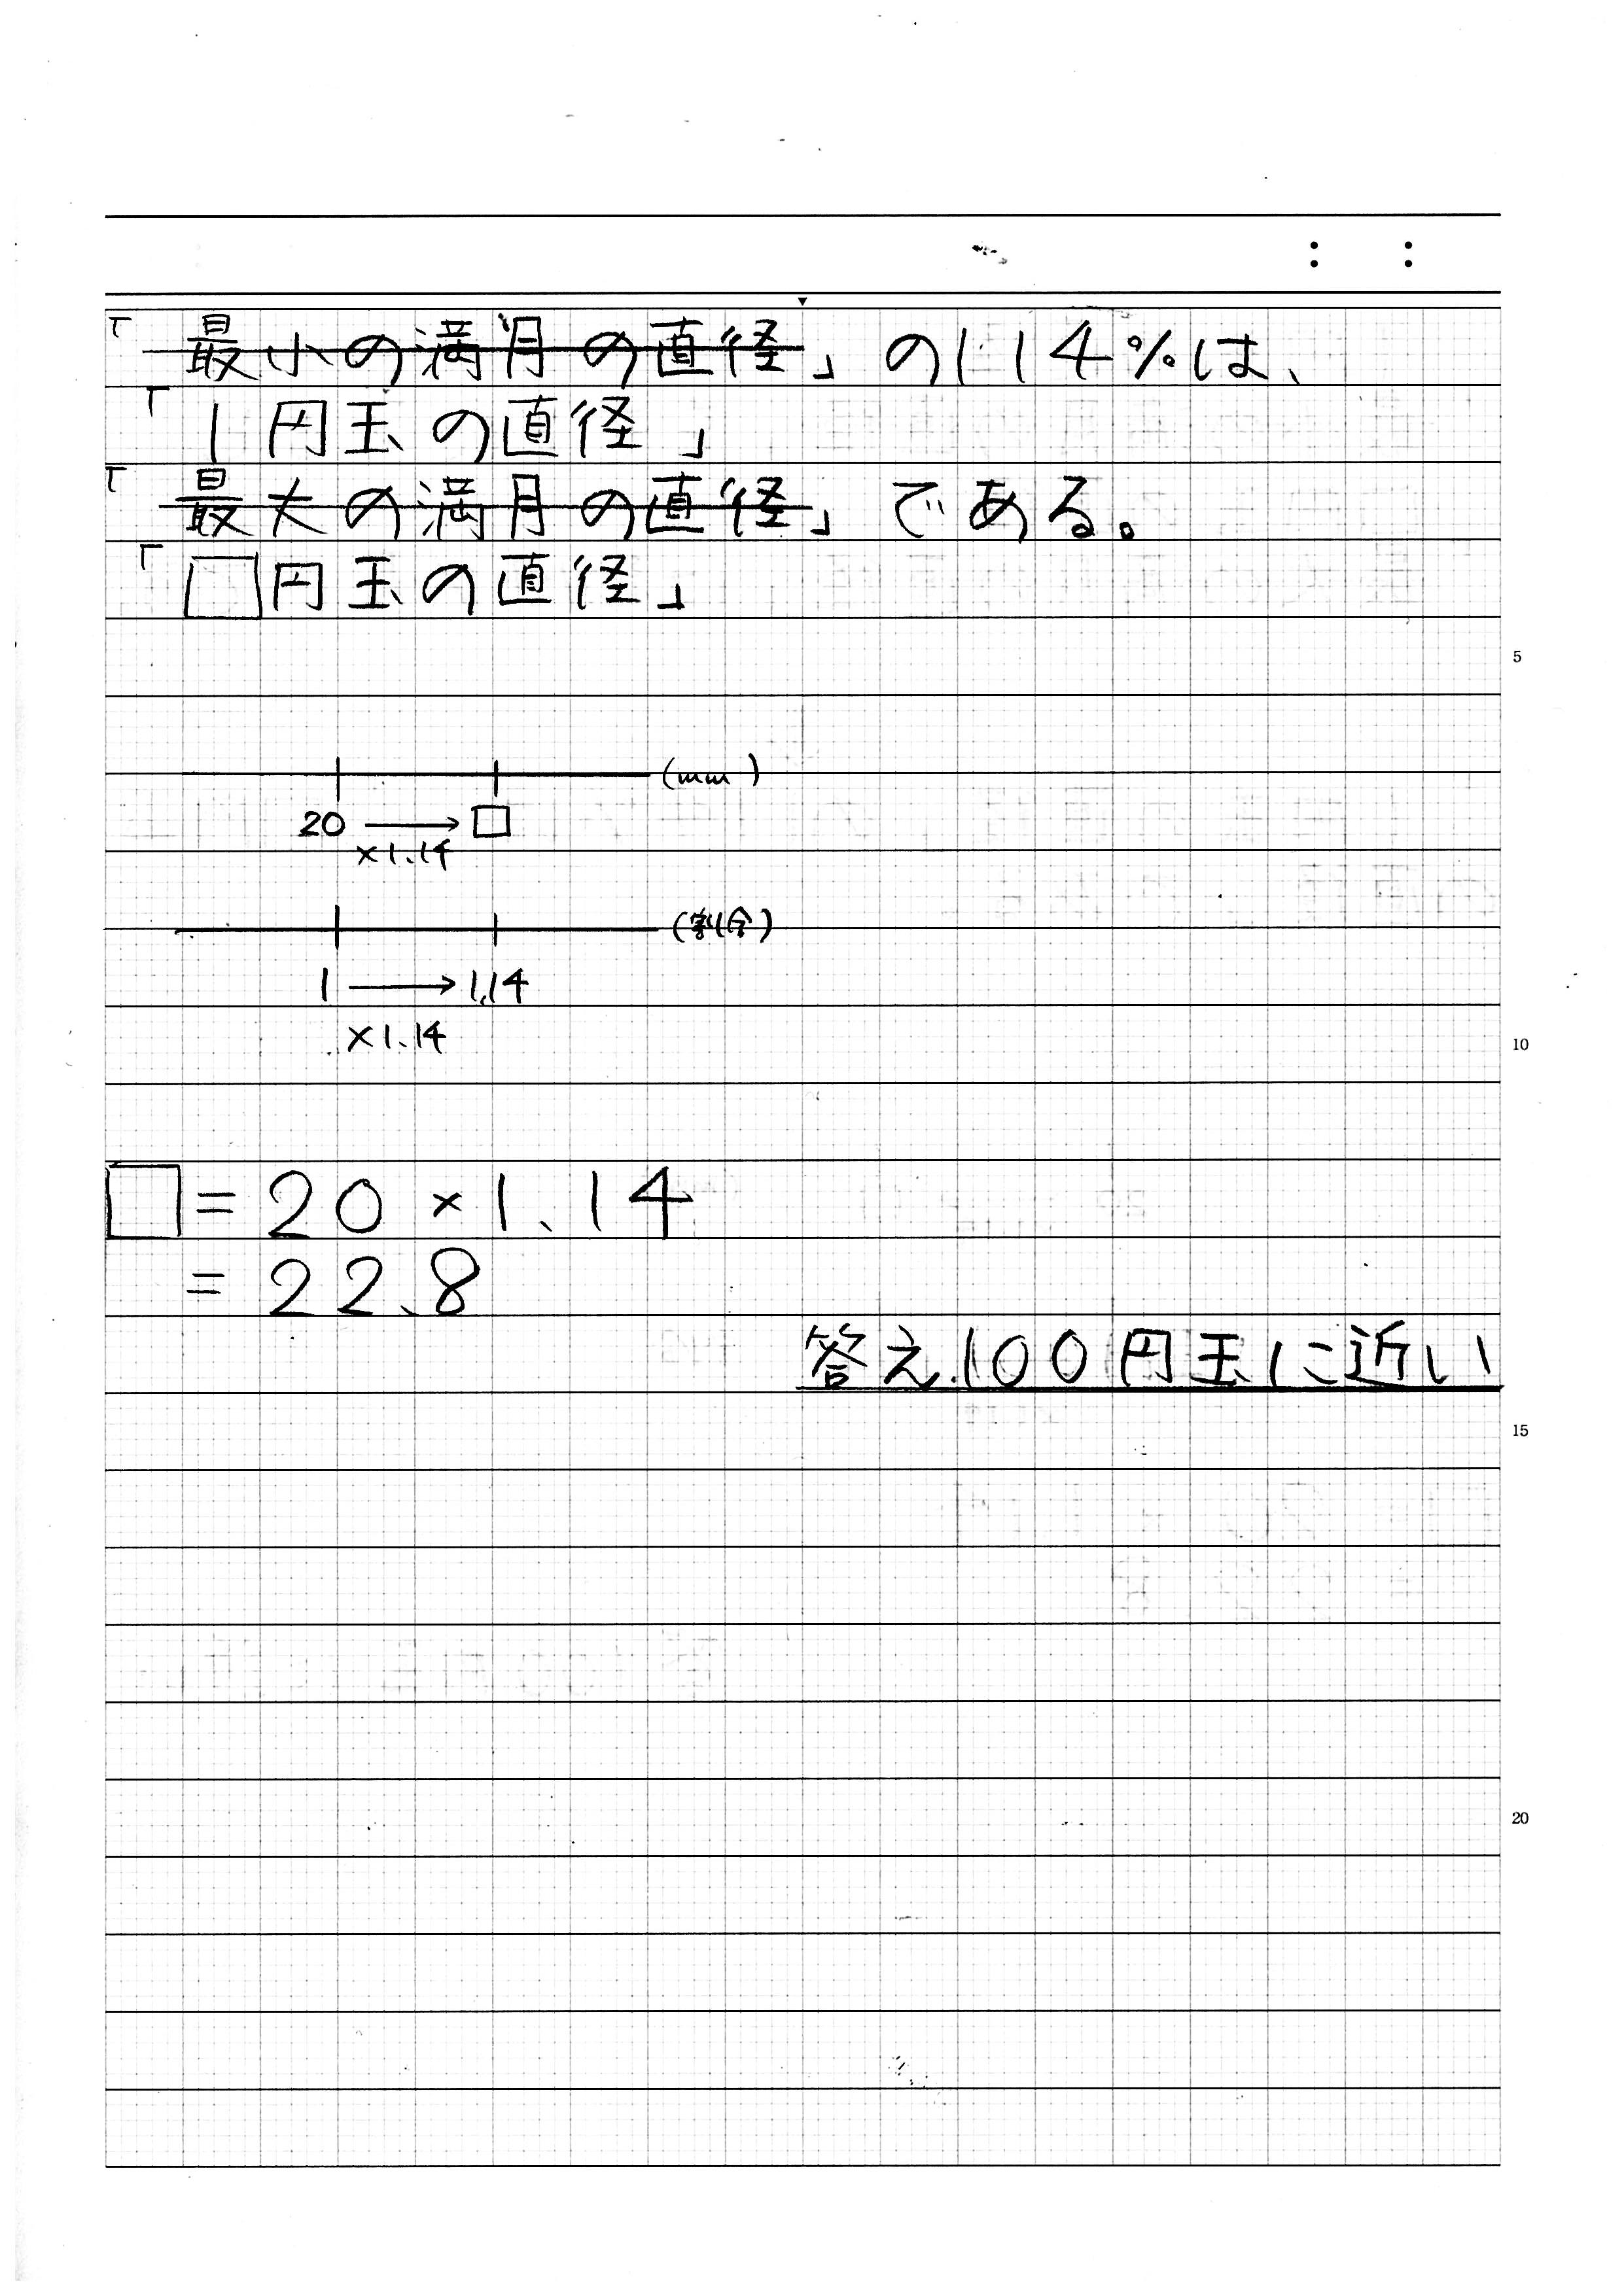 「最小の満月の直径」の114%は、
「1円玉の直径」
「最大の満月の直径」である。
「□円玉の直径」
5
(mm)
20 → □
×1.14
(割合)
1 → 1.14
×1.14
10
□=20×1.14
=22.8
答え.100円玉に近い
15
20